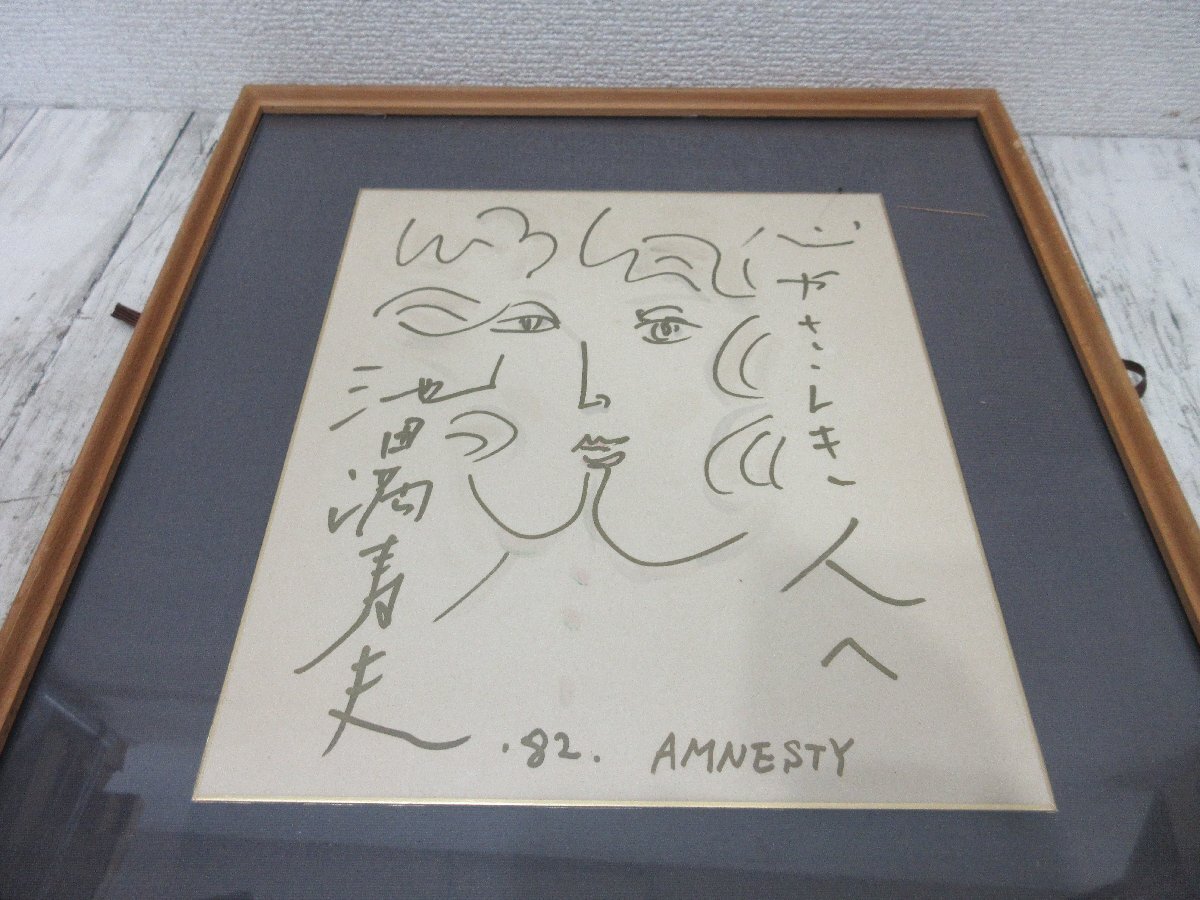 心やさしき人へ
池田満寿夫
.82. AMNESTY